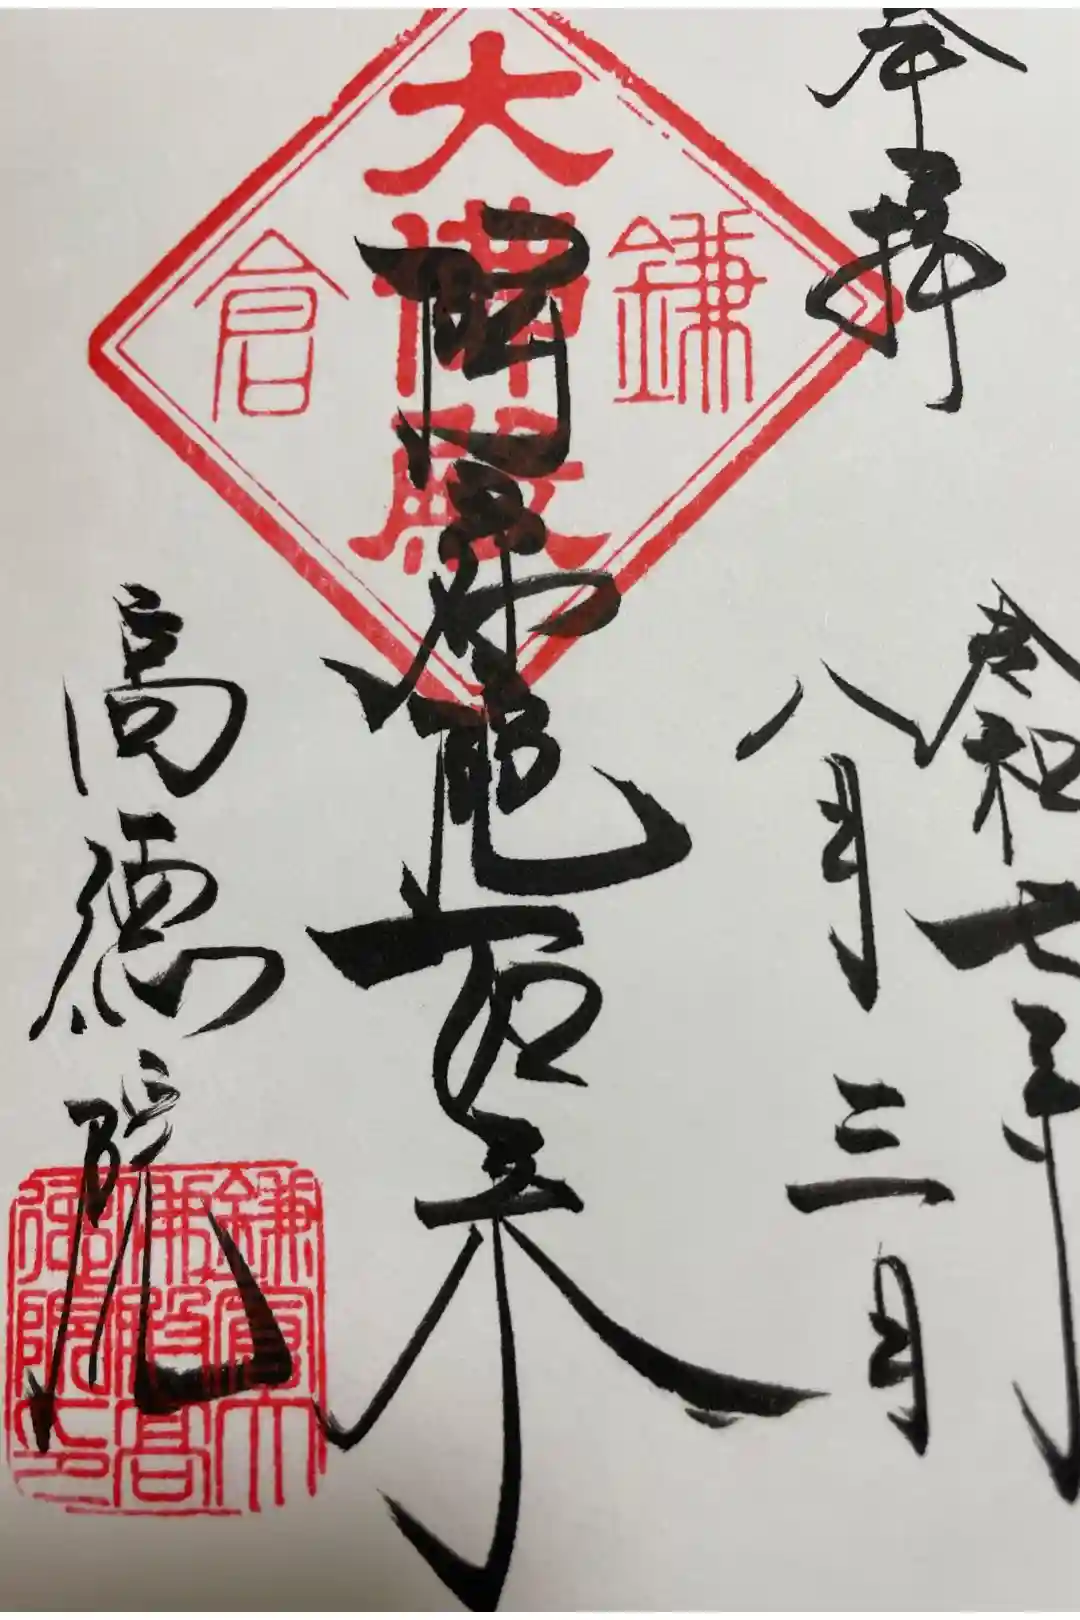 奉拝
令和七年
八月三日
鎌倉
大佛殿
阿弥陀如来
高徳院
鎌倉大
佛殿高
徳院印